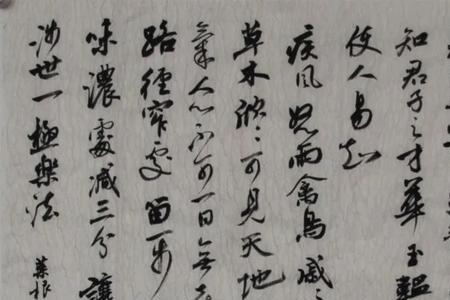 知君子之才華玉韞
使人易知
疾風怒雨禽鳥戚
草木欣〻可見天地
氣人心不可一日無
路徑窄處留一步
味濃處減三分讓
涉世一極樂法
菜根